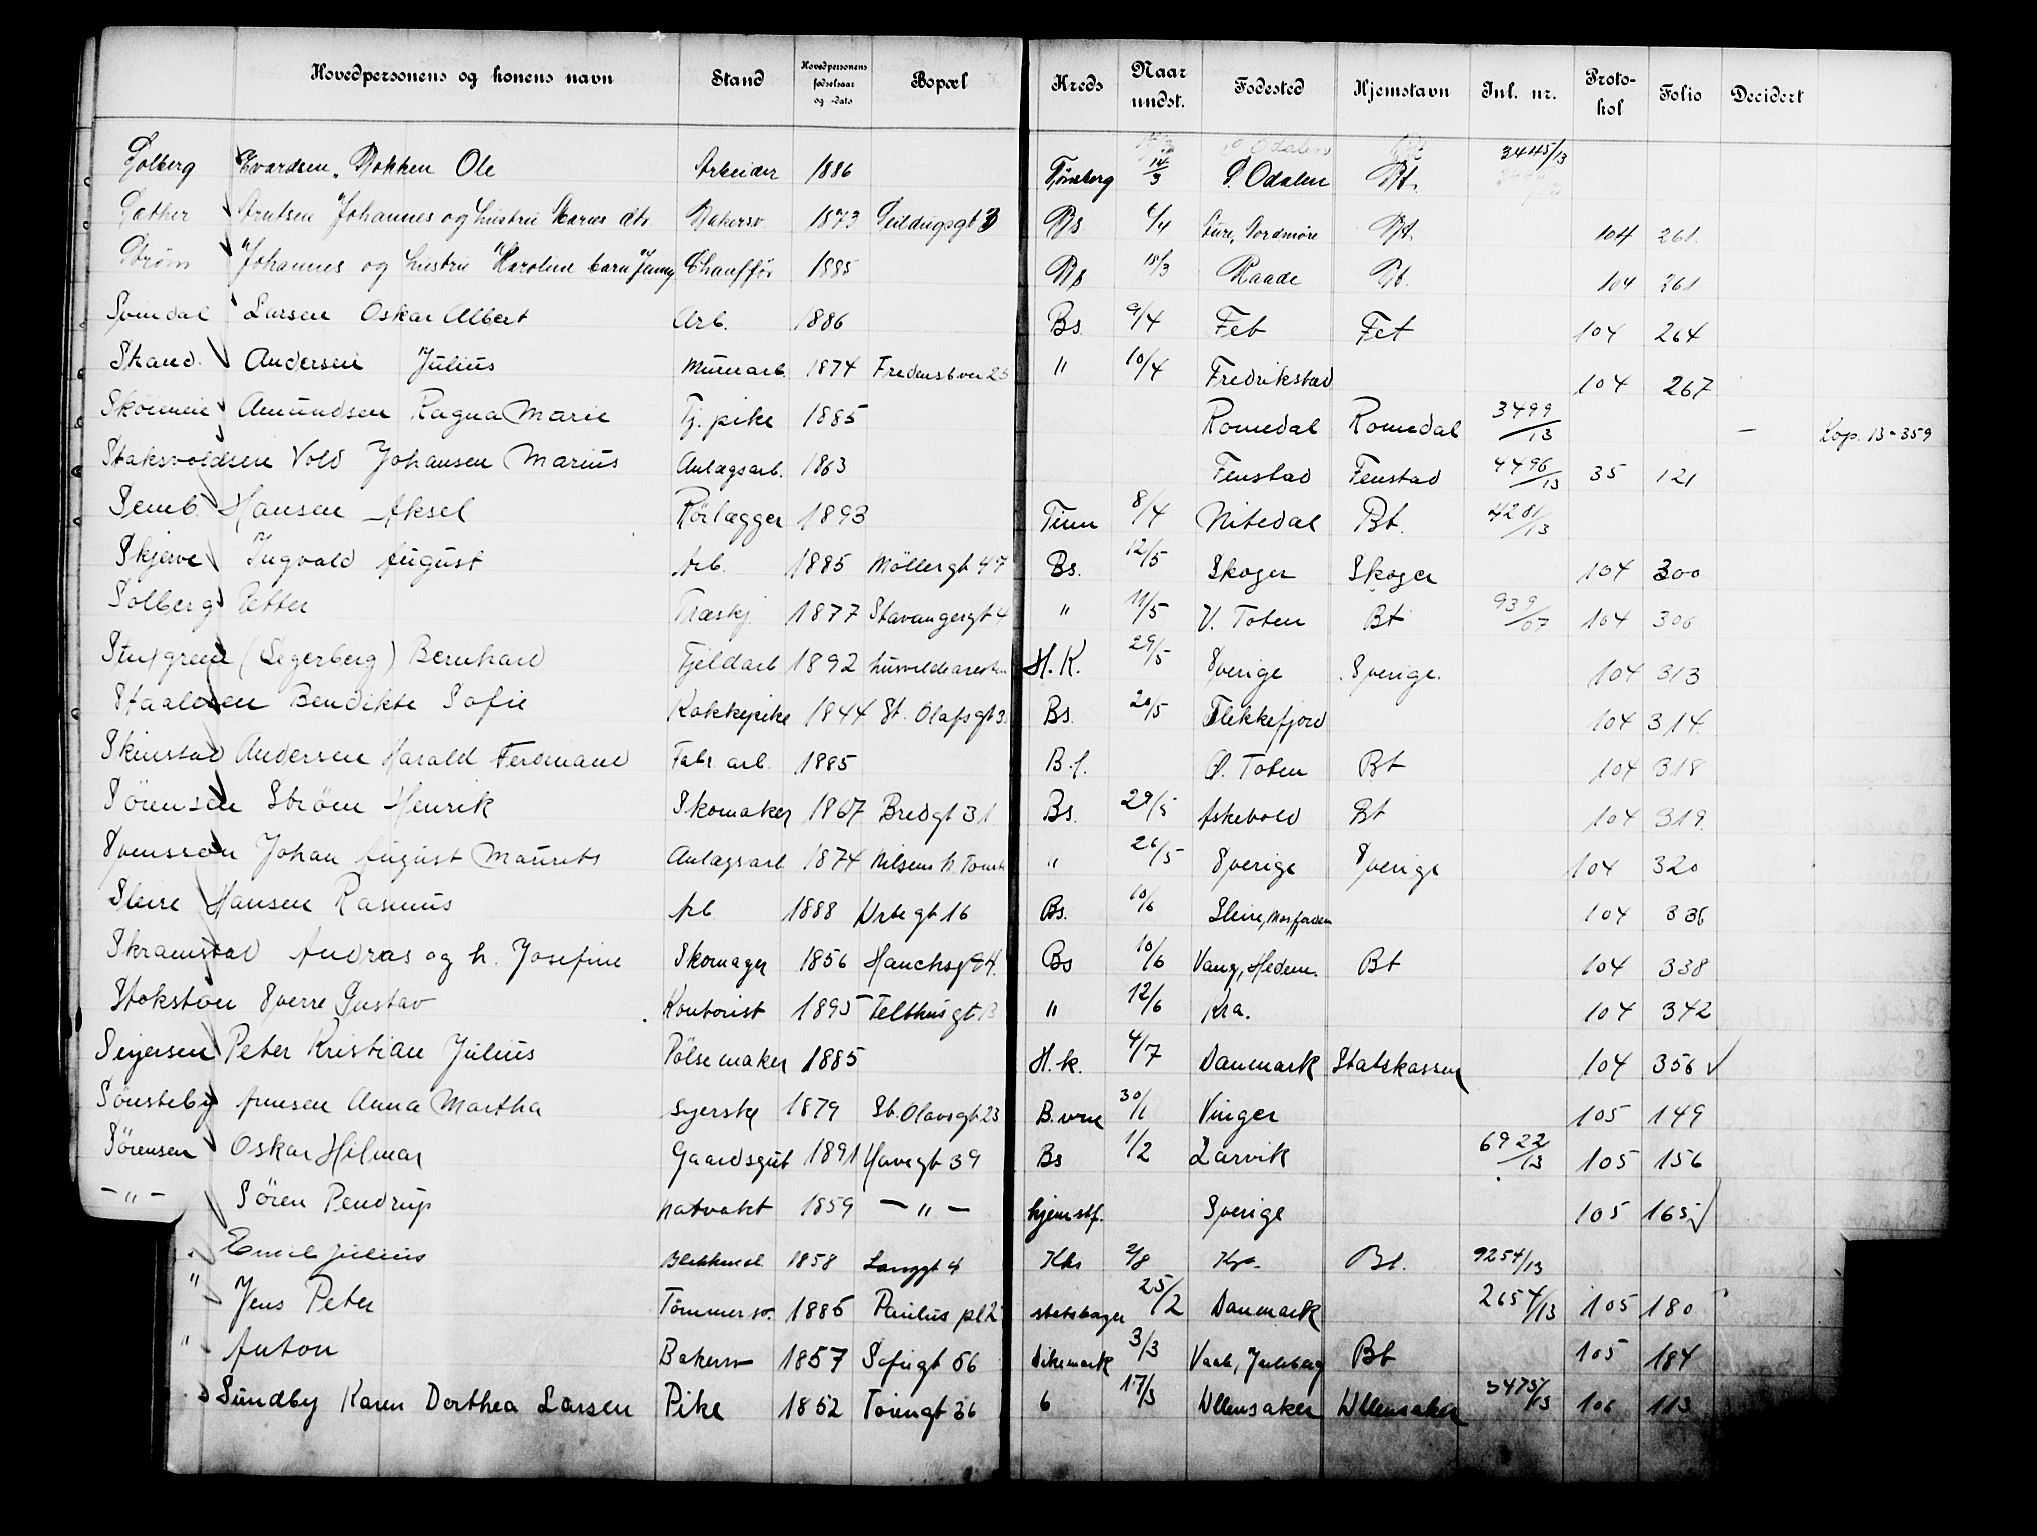 Hovedpersonens og konens navn Stand Hovedpersonens fødselsaar og -dato Bopæl Kreds Naar undst. Fødested Hjemstavn Inl. nr. Protokol Folio Decidert
Solberg Evardsen, Bakken Ole Arbeider 1886 Tønsberg 14/3 S. Odalen Bt. 3445/13
Sæther Arntsen Johannes og hustru Bakersv 1873 Seildugsgt 3 Bs 4/4 Ture, Nordmøre Bt. 104 261
Strøm Johannes og hustru Karoline barn Jenny Chauffør 1885 Bs 15/3 Raade Bt. 104 261
Svindal Larsen Oskar Albert Arb. 1886 Bs 9/4 Fet Fet 104 264
Strand Andersen Julius Murarb. 1874 Fredensbvei 25 " 10/4 Fredrikstad 104 267
Amundsen Ragna Marie Tj. pike 1885 Romedal Romedal 3499/13 — Lop. 13-359
Staksvoldsen Vold Johansen Marius Anlægsarb. 1863 Fenstad Fenstad 4496/13 35 121
Semb Hansen Aksel Rørlægger 1893 Tinn 8/4 Nitedal Bt. 4281/13
Skjerve Ingvald August Arb. 1885 Møllergt 47 Bs. 12/5 Skoger Skoger 104 300
Solberg Petter Træskj 1877 Stavangergt 4 " 11/5 V. Toten Bt 939/07 104 306
(Segerberg) Bernhard Fjeldarb 1892 H. K. 29/5 Sverige Sverige. 104 313
Staalesen Bendikte Sofie Kokkepike 1844 St. Olafsgt 3. Bs. 20/5 Flekkefjord 104 314
Skinstad Andersen Harald Ferdinand Fabr. arb. 1885 B.f. Ø. Toten Bt 104 318
Sørensen Strøm Henrik Skomaker 1867 Bredgt 31 Bs. 29/5 Askevold Bt 104 319
Svensson Johan August Maurits Anlægsarb 1874 Nilsens h. " 26/5 Sverige Sverige 104 320
Sleire Hansen Rasmus Arb 1888 Urtegt 16 Bs. 10/6 Sleire, 104 336
Skramstad Andras og h. Josefine Skomager 1856 Hauchsgt 4. Bs 10/6 Vang, Hedem. Bt 104 338
Stokston Sverre Gustav Kontorist 1895 Telthusgt 13 " 12/6 Kra. 104 342
Seyersen Peter Kristian Julius Pølsemaker 1885 H. k. 4/7 Danmark Statskassen 104 356 ✓
Sønsteby Arnesen Anna Martha Syerske 1879 St. Olavsgt 23 B. vrn 30/1 Vinger 105 149
Sørensen Oskar Hilmar Gaardsgut 1891 Havegt 39 Bs 1/2 Larvik 6922/13 105 156
— " — Søren Pendrup natvakt 1859 — " — hjemstf. Sverige 105 165 ✓
" Emil Julius 1858 Langgt 4 Kks 2/8 Kra. Bt. 9254/13
" Jens Peter Tømmersv. 1886 Paulus pl 2 statsborger 25/2 Danmark 2654/13 105 180
" Anton Bakersv 1857 Sofiegt 56 Dikemark 3/3 Vaale, Jarlsberg Bt 105 184
Sundby Karen Dorthea Larsen Pike 1852 Toiengt 36 6 17/3 Ullensaker Ullensaker 3475/13 106 113